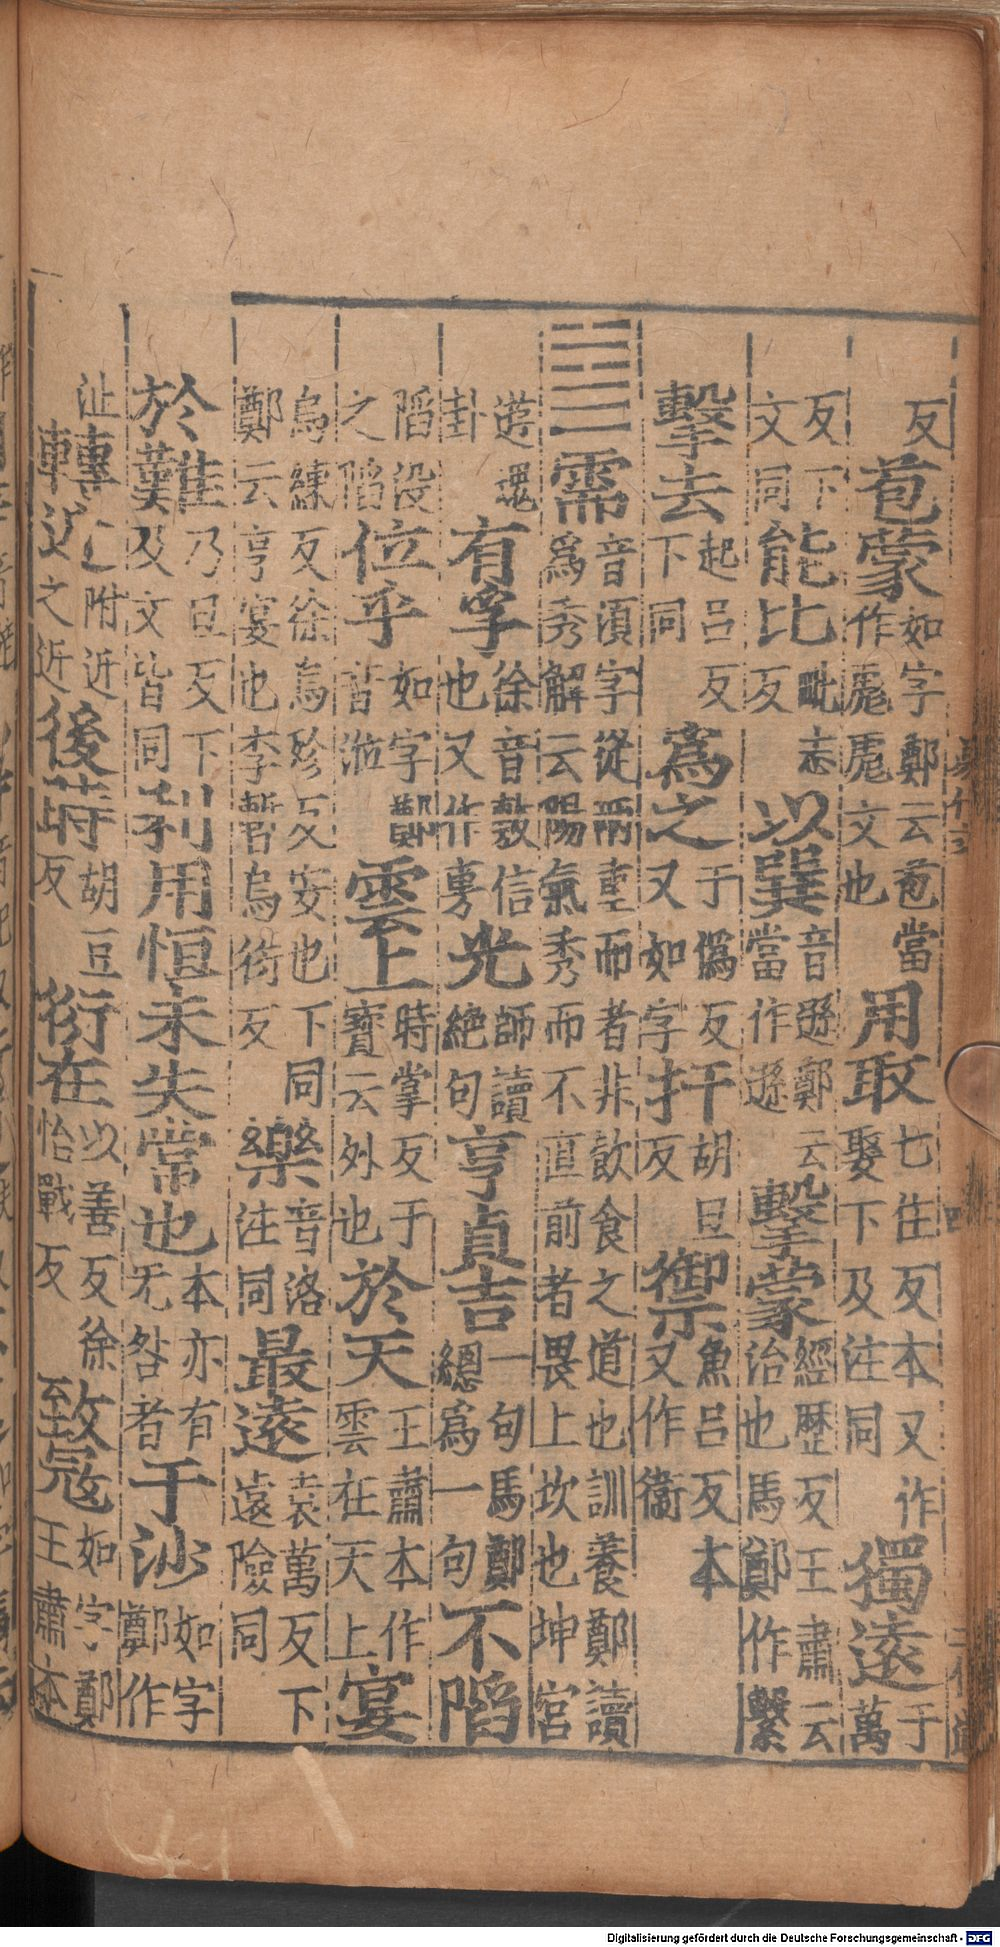 反苞蒙如字鄭云苞當作彪彪文也用取七住反本又作娶下及注同獨遠于萬
反下文同能比毗志反以巽音遜鄭云當作遜擊蒙經歷反王肅云治也馬鄭作繫
擊去起呂反下同爲之于僞反又如字扞胡旦反禦魚呂反本又作衞
需音須字從兩重而者非飲食之道也訓養鄭讀爲秀解云陽氣秀而不直前者畏上坎也坤宮
遊魂卦有孚徐音敷信也又作旉光師讀絕句亨貞吉一句馬鄭總爲一句不陷
陷没之陷位乎如字鄭音涖雲上時掌反于寶云外也於天王肅本作雲在天上宴
烏練反徐烏殄反安也下同鄭云享宴也李暫烏衍反樂音洛注同最遠袁萬反下遠險同
於難乃旦反下及文皆同利用恒未失常也本亦有无咎者于沙如字鄭作
沚轉近附近之近後時胡豆反衍在以善反徐怡戰反致寇如字鄭王肅本
Digitalisierung gefördert durch die Deutsche Forschungsgemeinschaft - DFG